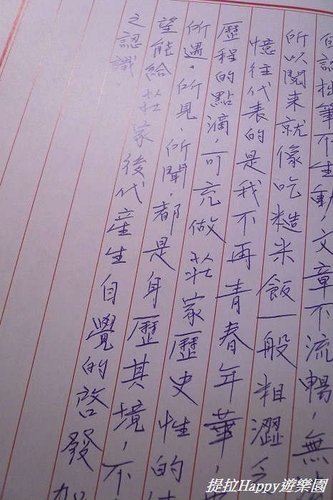 自認拙筆不生動，文章不流暢，無
所以閱來就像吃糙米飯一般粗澀
憶往代表的是我不再青春年華
歷程的點滴，可充做莊家歷史性的
所遇，所見，所聞，都是身歷其境，不
望能給莊家後代產生自覺的啓發
之認識
提拉Happy遊樂園